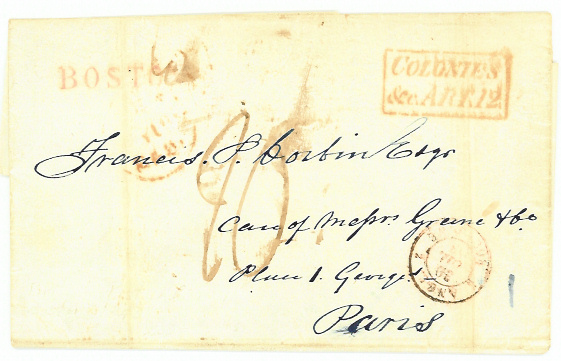 BOSTON
COLONIES
&c. ART. 12
Francis. P. Corbin Esqr
Care of Messrs. Greene & Co
Place St. Georges
Paris